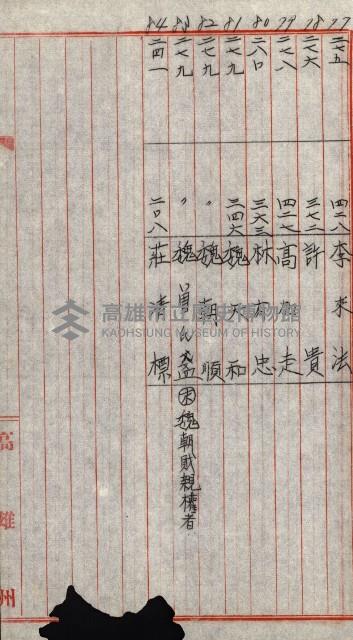 77 二七五 四二八 李來法
78 二七六 三七二 許 貴
79 二七八 四二七 高 走
80 二八〇 三六三 林 忠
81 二七九 三四六 魏 和
82 二七九 〃 魏朝順
83 二七九 〃 魏 盆 魏朝財親權者
84 二四一 二〇八 莊 標
高雄州
高雄市立歷史博物館
KAOHSIUNG MUSEUM OF HISTORY